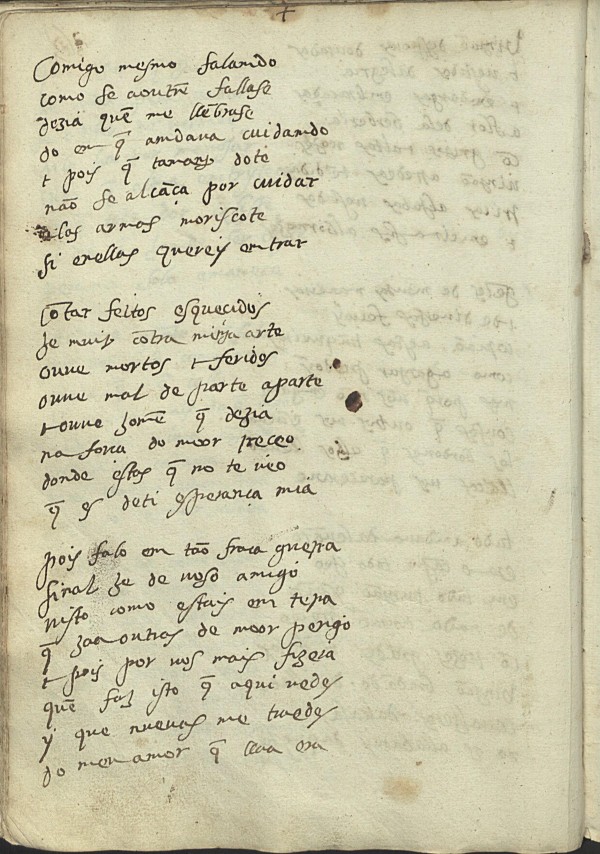 Comigo mesmo falamdo
como se aoutrẽ fallase
dezia quẽ me llẽbrase
do em q̃ amdava cuidamdo
t pois q̃ tamanho dote
não se alcãça por cuidar
las armas moriscote
si enellas quereis emtrar

Cõtar feitos esquecidos
he muito cõtra minha arte
ouve mortos t feridos
ouve mal de parte aparte
t ouve homẽ q̃ dezia
na força do moor preceo
donde estas q̃ no te veo
q̃ es deti esperança mia

pois falo em tão fraca guerra
sinal he de voso amigo
nisto como estais em terra
q̃ haa outras de moor perigo
t pois por vos mais fizera
quẽ faz isto q̃ aqui vedes
y que nuevas me traedes
do meu amor q̃ laa era